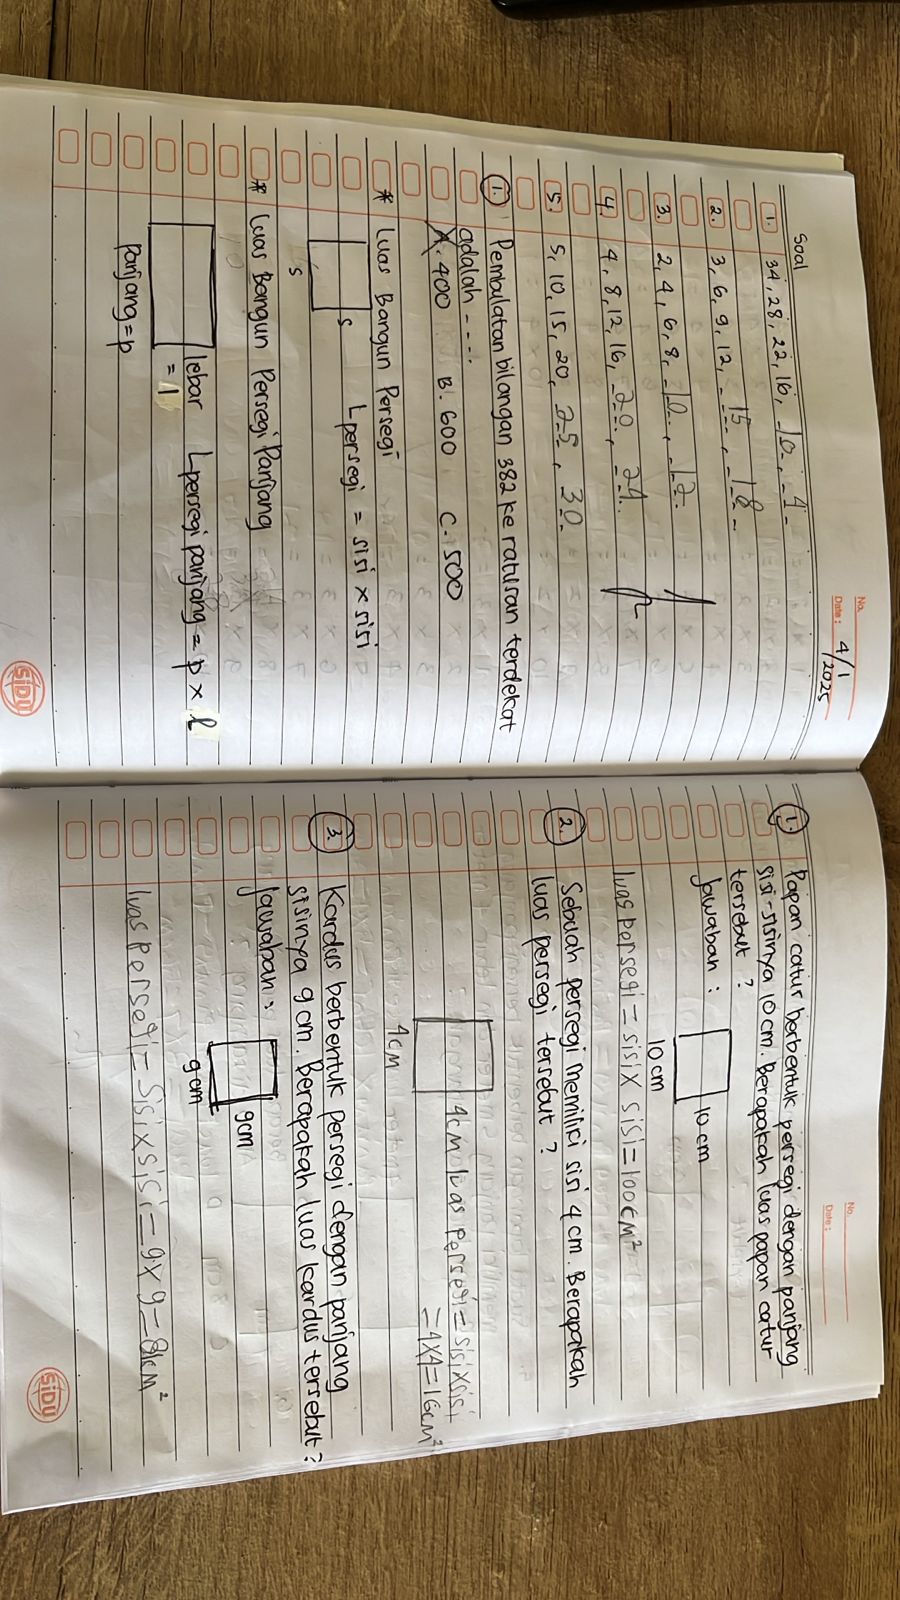 No.
Date: 4/1 2025
Soal
1. 34, 28, 22, 16, 10, 4
2. 3, 6, 9, 12, 15, 18
3. 2, 4, 6, 8, 10, 12
4. 4, 8, 12, 16, 20, 24
5. 5, 10, 15, 20, 25, 30
1. Pembulatan bilangan 382 ke ratusan terdekat
adalah ....
A. 400 B. 600 C. 500
* Luas Bangun Persegi
s Lpersegi = sisi x sisi
s
* Luas Bangun Persegi Panjang
lebar Lpersegi panjang = p x l
= l
Panjang = p
SIDU
No.
Date:
1. Papan catur berbentuk persegi dengan panjang
sisi-sisinya 10 cm. Berapakah luas papan catur
tersebut ?
Jawaban :
10 cm
10 cm
luas persegi = sisi x sisi = 100 cm²
2. Sebuah persegi memiliki sisi 4 cm. Berapakah
luas persegi tersebut ?
4cm luas persegi = sisi x sisi
= 4x4 = 16cm²
4cm
3. Kardus berbentuk persegi dengan panjang
sisinya 9 cm. Berapakah luas kardus tersebut ?
Jawaban :
9cm
9cm
luas persegi = sisi x sisi = 9 x 9 = 81cm²
SIDU